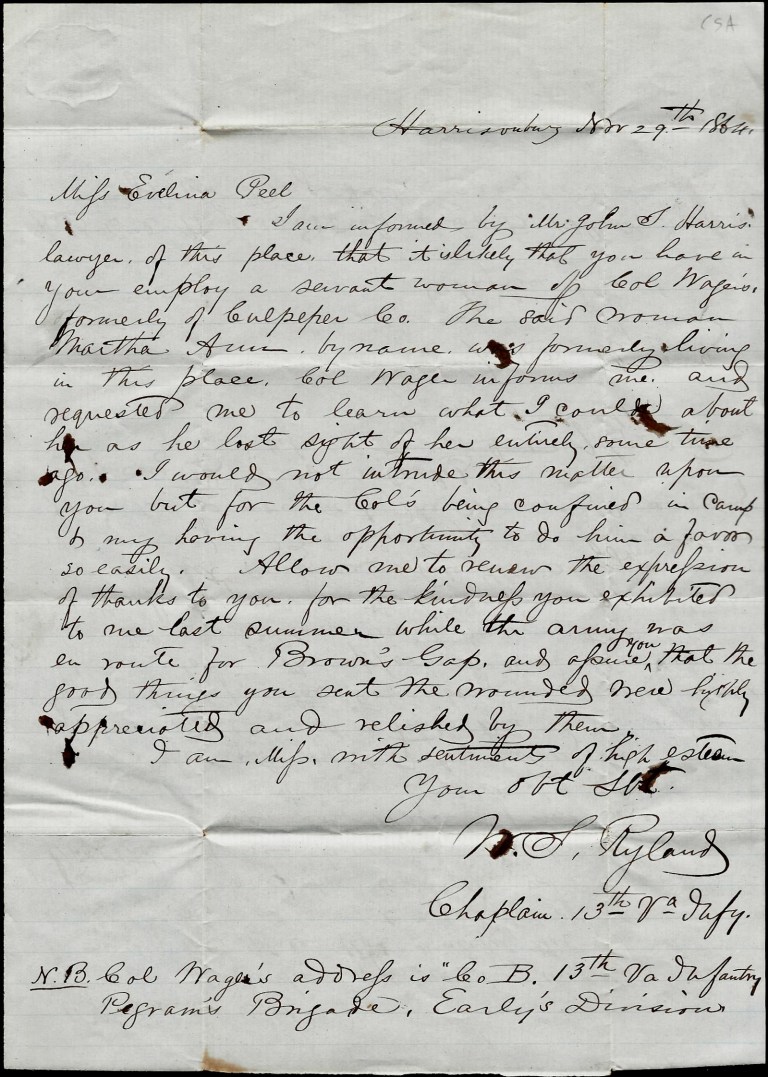 CSA
Harrisonburg Nov 29th 1864.
Miss Evelina Peel
I am informed by Mr. John S. Harris.
lawyer. of this place. that it is likely that you have in
your employ a servant woman of Col Wager's.
formerly of Culpeper Co. The said woman
Martha Ann. by name. was formerly living
in this place. Col Wager informs me. and
requested me to learn what I could about
her as he lost sight of her entirely, some time
ago. I would not intrude this matter upon
you but for the Col's being confined in camp
& my having the opportunity to do him a favor
so easily. Allow me to renew the expression
of thanks to you. for the kindness you exhibited
to me last summer while the army was
en route for Brown's Gap. and assure you that the
good things you sent the wounded were highly
appreciated and relished by them.
I am, Miss. with sentiments of high esteem
Your obt Svt.
W. S. Ryland
Chaplain. 13th Va Infy.
N.B. Col Wager's address is "Co B. 13th Va Infantry
Pegram's Brigade, Early's Division